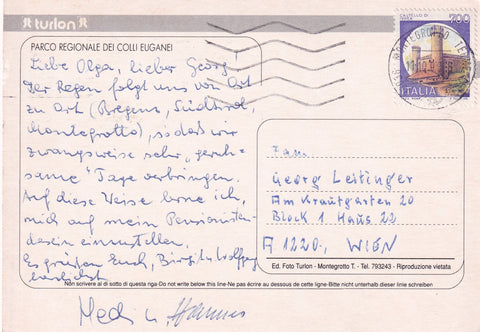 turlon
PARCO REGIONALE DEI COLLI EUGANEI
Liebe Olga, lieber Georg.
Der Regen folgt uns von Ort
zu Ort (Bregenz, Südtirol,
Montegrotto), sodaß wir
zwangsweise sehr "geruh-
same" Tage verbringen.
Auf diese Weise lerne ich,
mich auf mein Pensionisten-
dasein einzustellen.
Es grüßen Euch, Birgit u. Wolfgang
herzlichst
Hannes
CASTELLO DI
700
ITALIA
MONTEGROTTO TE
Fam.
Georg Leitinger
Am Krautgarten 20
Block 1 Haus 22
A 1220, WIEN
Ed. Foto Turlon - Montegrotto T. - Tel. 793243 - Riproduzione vietata
Non scrivere al di sotto di questa riga-Do not write below this line-Ne pas écrire au dessous de cette ligne-Bitte nicht unterhalb dieser linie schreiben